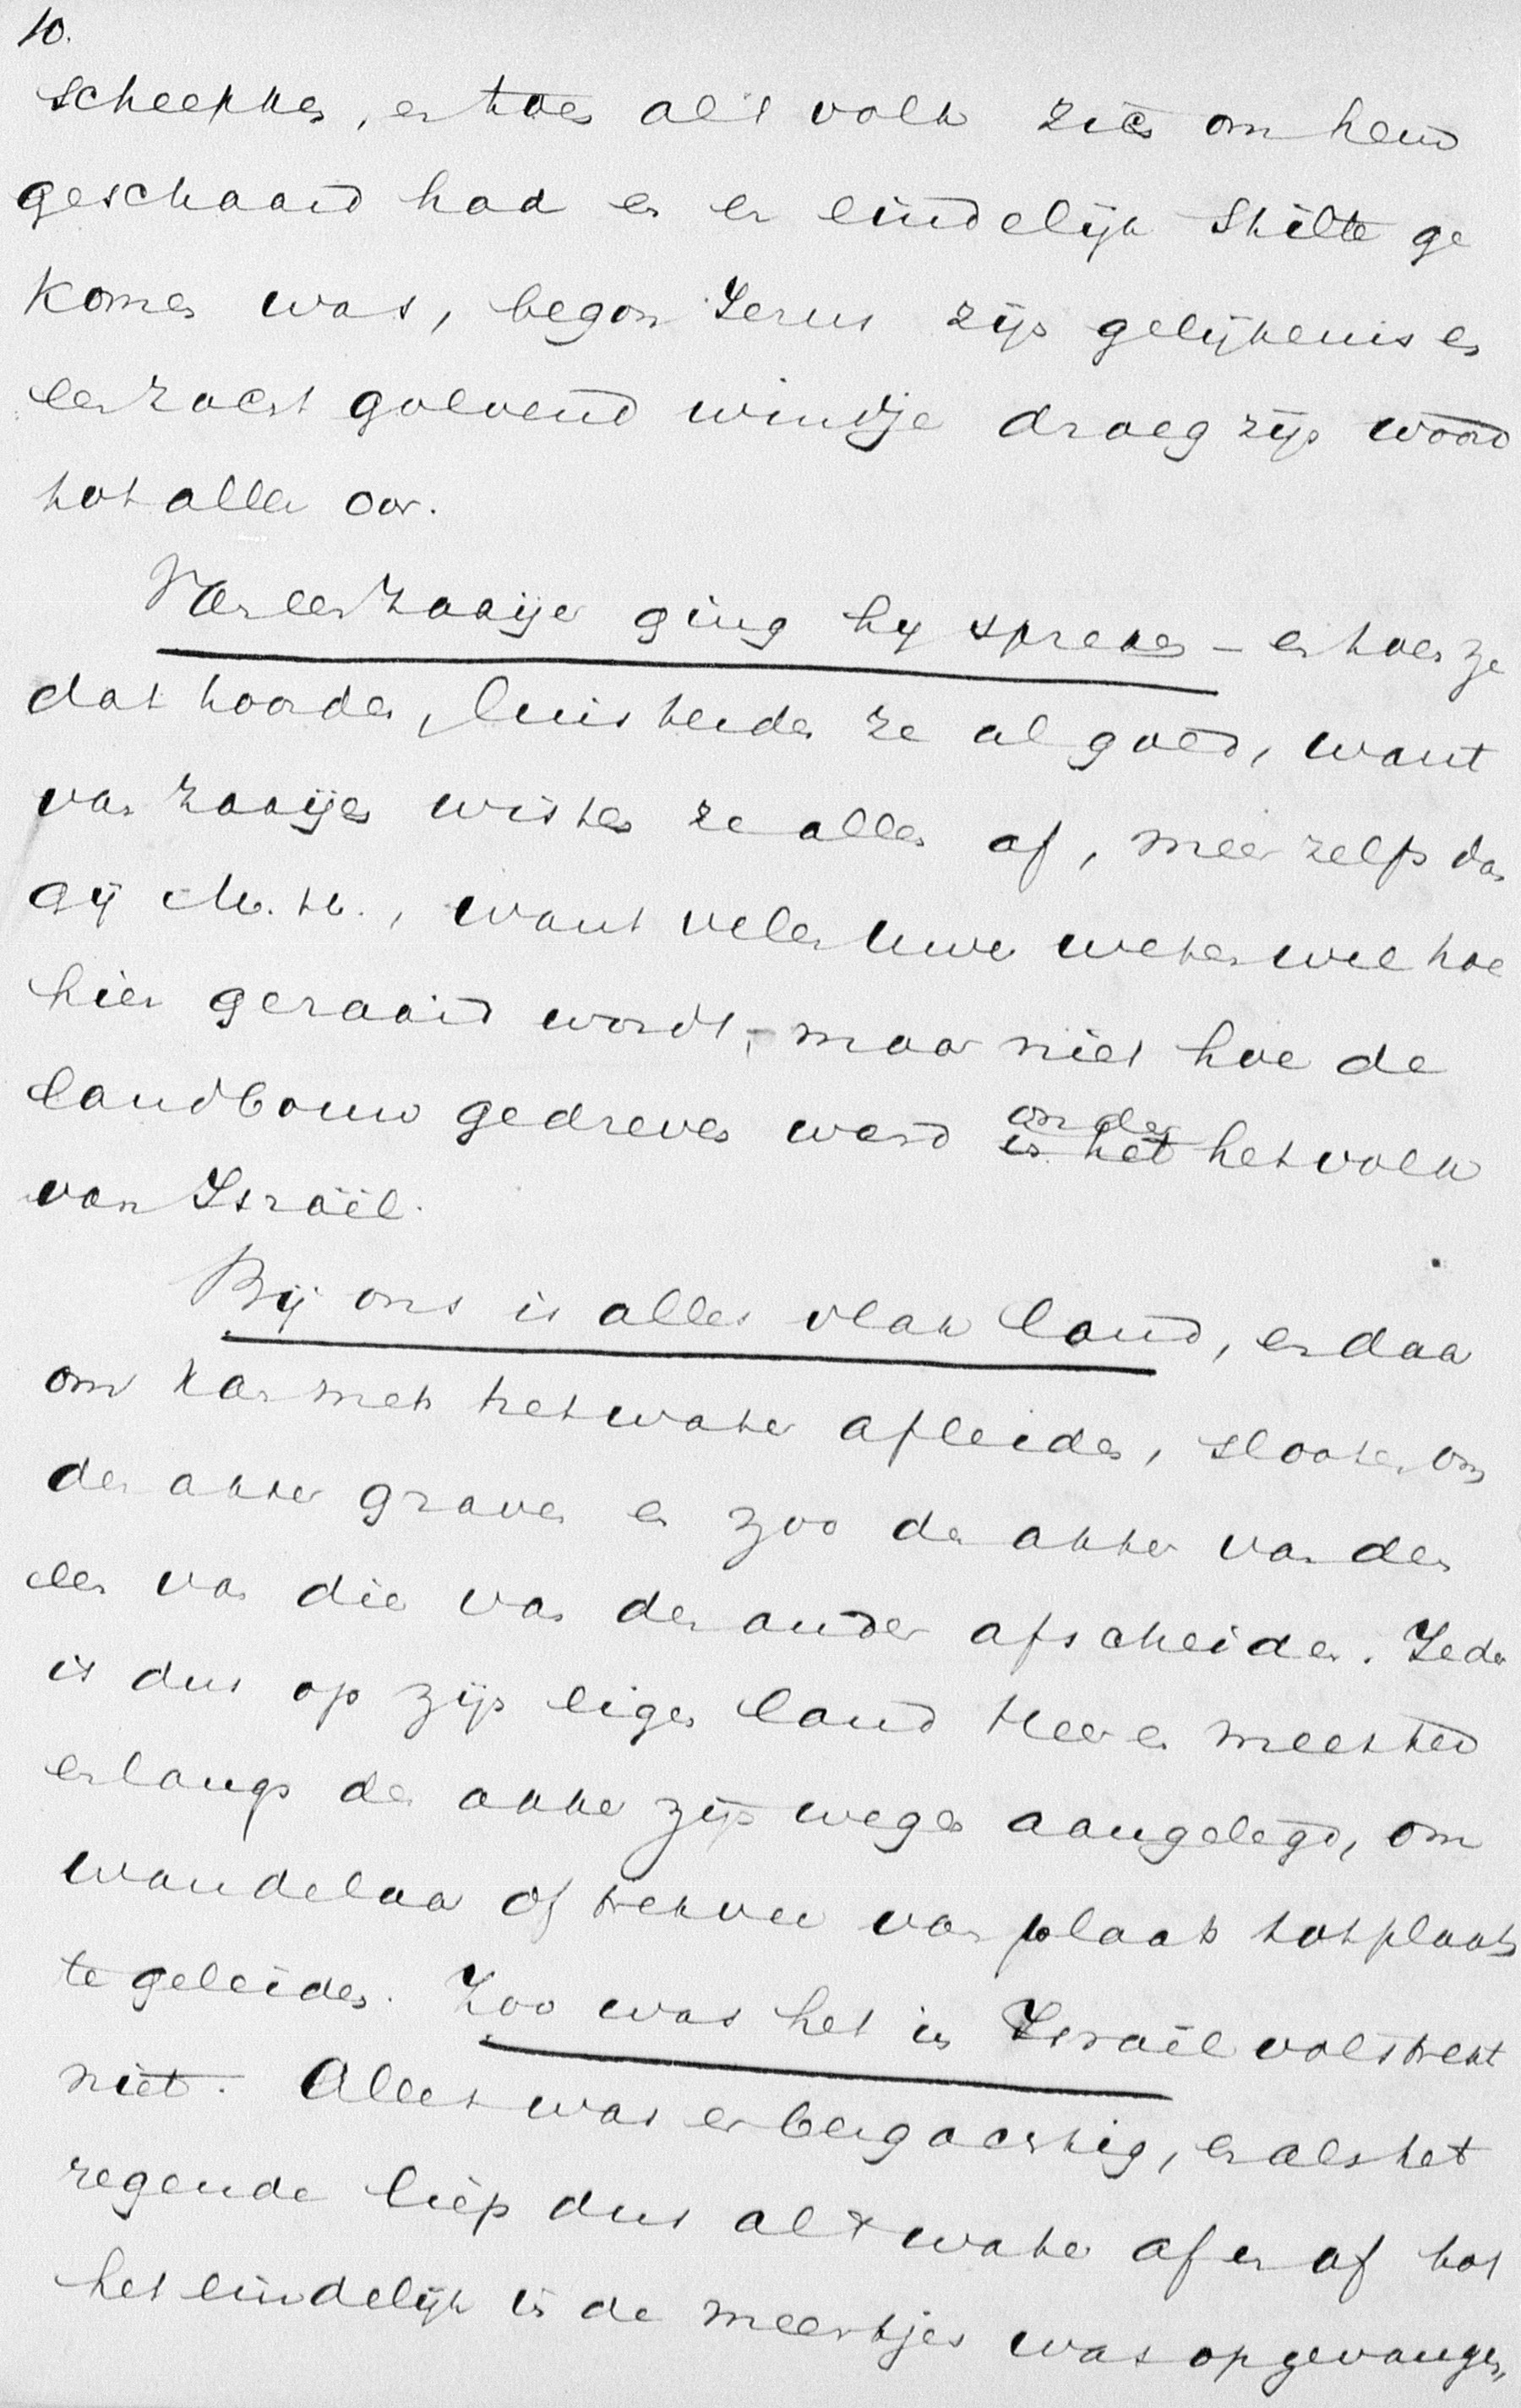 10.
scheepken, en toen al 't volk zich om hem
geschaard had en er eindelijk stilte ge
komen was, begon Jezus zijn gelijkenis en
een zacht golvend windje droeg zijn woord
tot aller oor.
Van een zaaijer ging hij spreken – en toen ze
dat hoorden, luisterden ze al goed, want
van zaaijen wisten ze alles af, meer zelfs dan
gij M. H., want velen Uwer weten wel hoe
hier gezaaid wordt, maar niet hoe de
landbouw gedreven werd onder
in het het volk
van Israël.
Bij ons is alles vlak land, en daar
om kan men het water afleiden, slooten om
den akker graven en zoo den akker van den
een van die van den ander afscheiden. Ieder
is dus op zijn eigen land Heer en meester
en langs den akker zijn wegen aangelegd, om
wandelaar of trekvee van plaats tot plaats
te geleiden. Zoo was het in Israël volstrekt
niet. Alles was er bergachtig, en als het
regende liep dus al 't water af en af tot
het eindelijk in de meertjes was opgevangen,